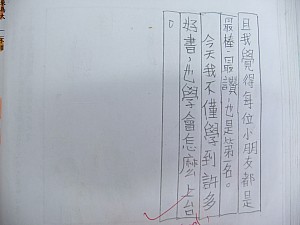 且我覺得每位小朋友都是
最棒、最讚,也是第一名。
今天我不僅學到許多
好書,也學會怎麼上台
。